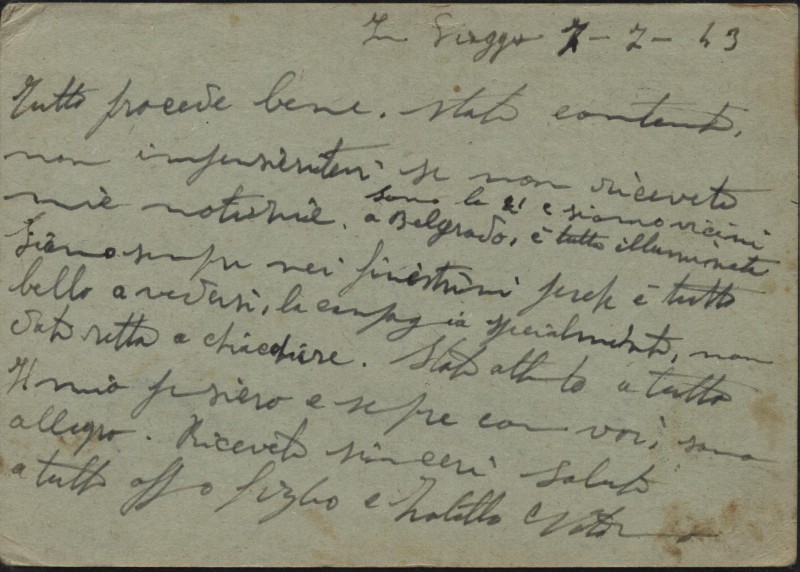 In Viaggio 7-7-43
Tutto procede bene. State contenti,
non impensieritevi se non ricevete
mie notizie. sono le 21 e siamo vicini
a Belgrado, è tutto illuminata
Siamo sempre nei finestrini perch è tutto
bello a vedersi, la campagnia specialmente, non
date retta a chiacchiere. State attento a tutto
Il mio pensiero e sepre con voi, sono
allegro. Ricevete sinceri saluti
a tutti aff o figlio e fratello